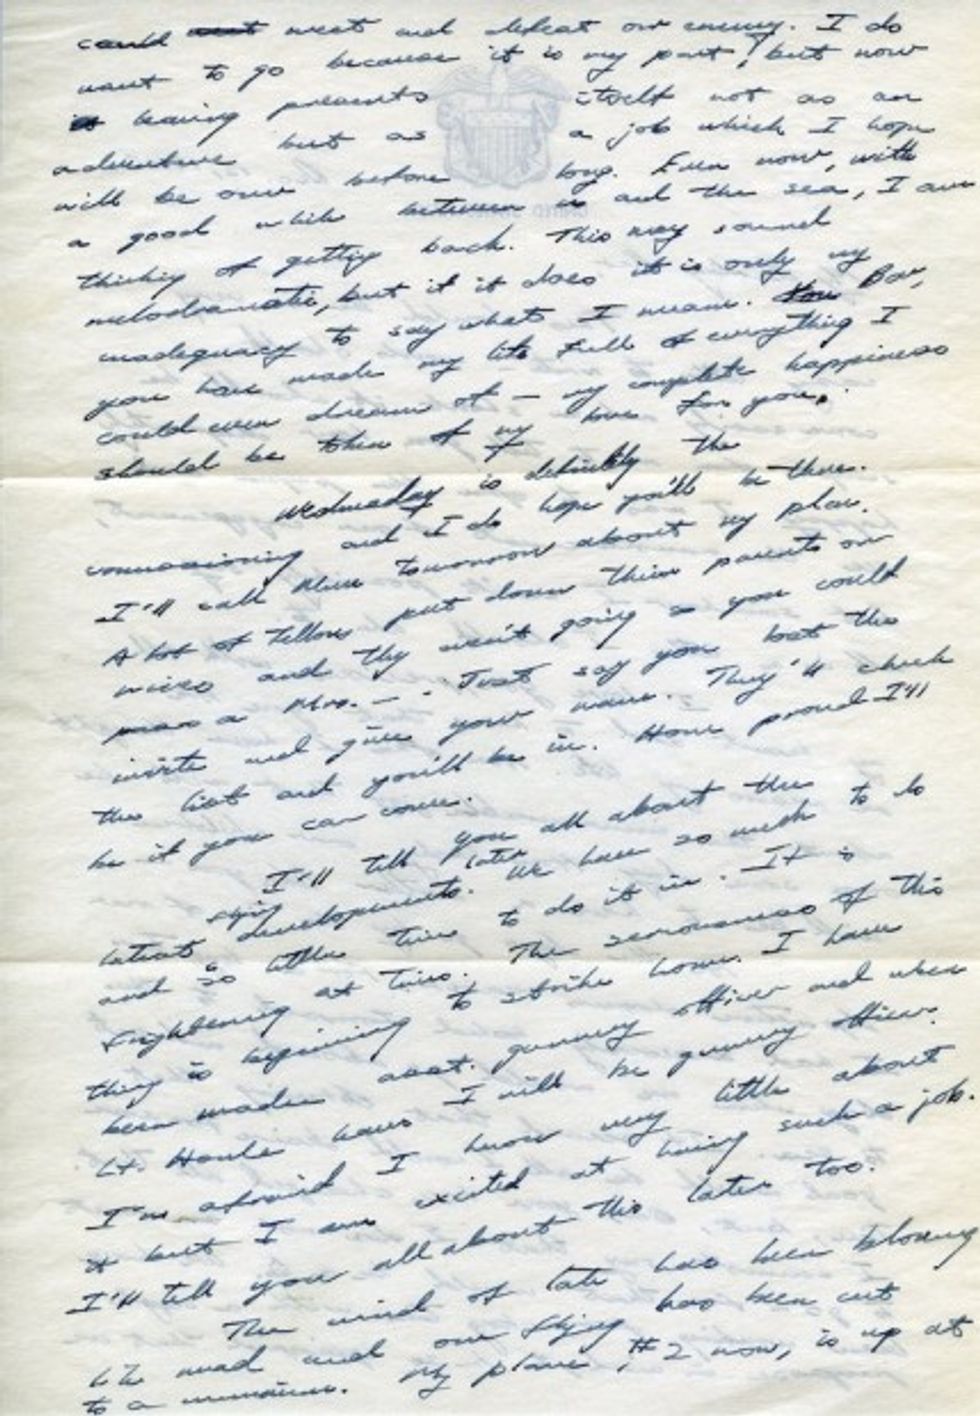 could meet and defeat our enemy. I do
want to go because it is my part, but now
leaving presents itself not as an
adventure but as a job which I hope
will be over before long. Even now, with
a good while between us and the sea, I am
thinking of getting back. This may sound
melodramatic, but if it does it is only my
inadequacy to say what I mean. Bar,
you have made my life full of everything I
could ever dream of — my complete happiness
should be token of my love for you.
Wednesday is definitely the
commissioning and I do hope you'll be there.
I'll call Mum tomorrow about my plan.
A lot of fellows put down their parents or
wives and they weren't going so you could
pass as a Mrs. — Just say you lost the
invite and give your name. They'll check
the list and you'll be in. How proud I'll
be if you can come.
I'll tell you all about the
latest flying developments later. We have so much to do
and so little time to do it in. It is
frightening at times. The seriousness of this
thing is beginning to strike home. I have
been made asst. gunnery officer and when
Lt. Houle leaves I will be gunnery officer.
I'm afraid I know very little about
it but I am excited at having such a job.
I'll tell you all about this later too.
The wind of late has been blowing
like mad and our flying has been cut
to a minimum. My plane, #2 now, is up at